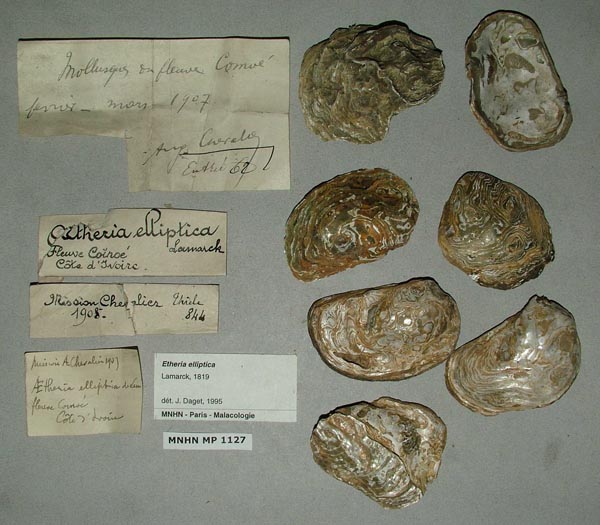 Mollusques du fleuve Comoé
février - mars 1907
Aug Chevalier
Entrée 62
Ætheria elliptica
Lamarck
Fleuve Comoé
Côte d'Ivoire.
Mission Chevalier
1908.
844
A. Chevalier 1907
Ætheria elliptica
fleuve Comoé
Côte d'Ivoire
Etheria elliptica
Lamarck, 1819
dét. J. Daget, 1995
MNHN - Paris - Malacologie
MNHN MP 1127